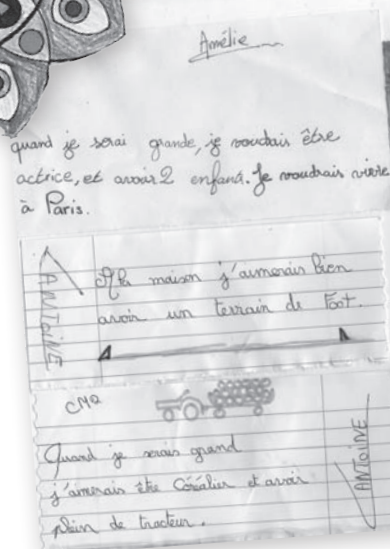 Amélie
quand je serai grande, je voudrais être
actrice, et avoir 2 enfant. Je voudrais vivre
à Paris.
ANTOINE
A la maison j'aimerais bien
avoir un terrain de Foot.
CM2
Quand je serais grand
j'aimerais être Céréalier et avoir
plein de tracteur.
ANTOINE